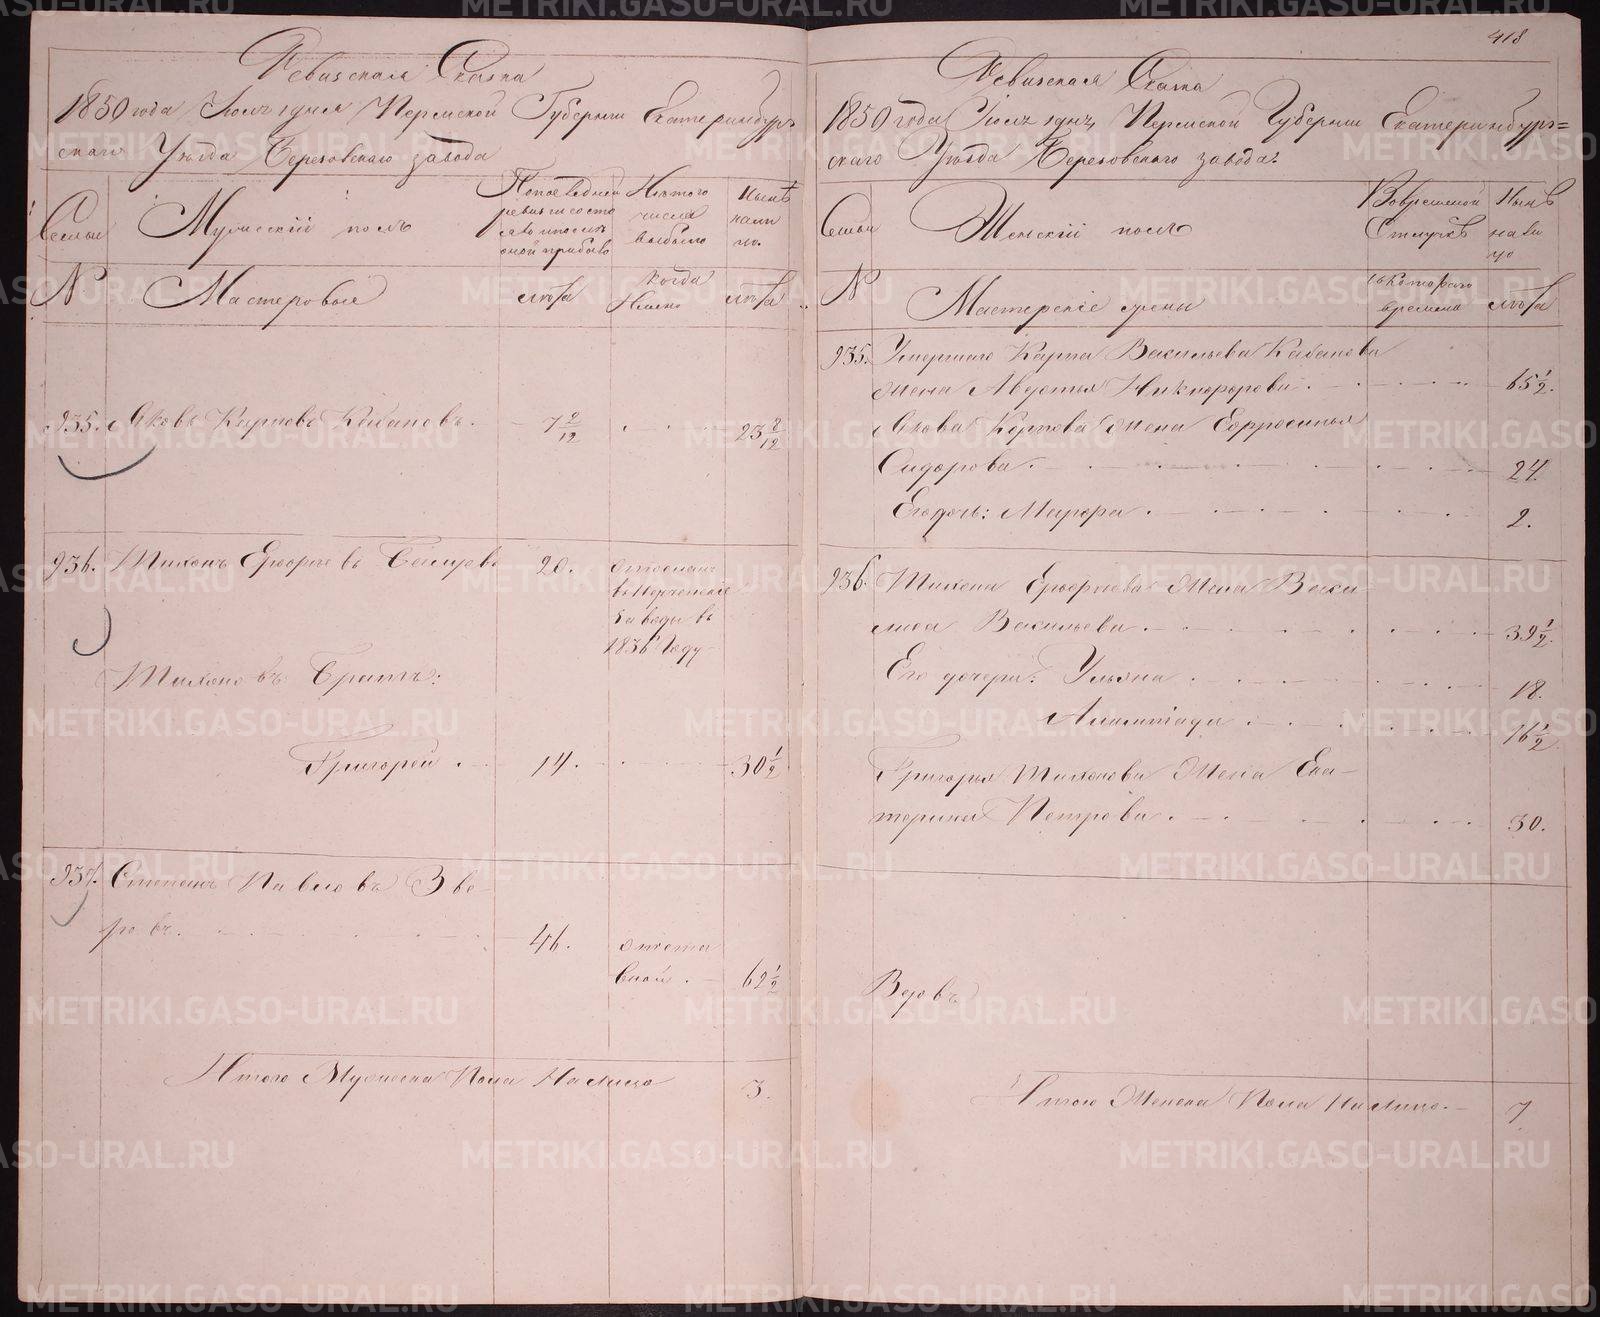 418
Ревизская Сказка
1850 года Июль дня Пермской Губернии Екатеринбург
скаго Уезда Березовскаго завода
Семьи
Мужеский полъ
По последней
ревизии состо
яло и после
оной прибыло
Из того
числа
выбыло
Ныне
нали
цо.
N
Мастеровые
лета
когда
Имянно
лета
935. Яковъ Карповъ Кабановъ. 7 2/12 23 2/12
936. Тихонъ Ерофеевъ 20. отосланъ
въ Нерчинскіе
Заводы въ
1836 Году
Тихоновъ Братъ:
Григорей 14. 30 1/2
937. Степанъ Павловъ Зве
ровъ. 46. отста
вной 62 1/2
Итого Мужеска Пола На лицо 3.
Ревизская Сказка
1850 года Июль дня Пермской Губернии Екатеринбург=
скаго Уезда Березовскаго завода.
Семьи
Женский полъ
Во временной
Отлучкѣ
Нынѣ
на ли
цо
N
Мастерскіе жены
съ котораго
времени
лѣта
935. Умершаго Карпа Васильева Кабанова
жена Авдотья Никифорова 65 1/2.
Якова Карпова жена Ефросинья
Сидорова. 24.
Его дочь: Марфа 2.
936. Тихона Ерофеева Жена
Васильева 39 1/2.
Его дочери: Ульяна 18.
16 1/2
Григорья Жена Ека-
терина Петрова 30.
Вдовъ
Итого Женска Пола На лицо. 7.
METRIKI.GASO-URAL.RU